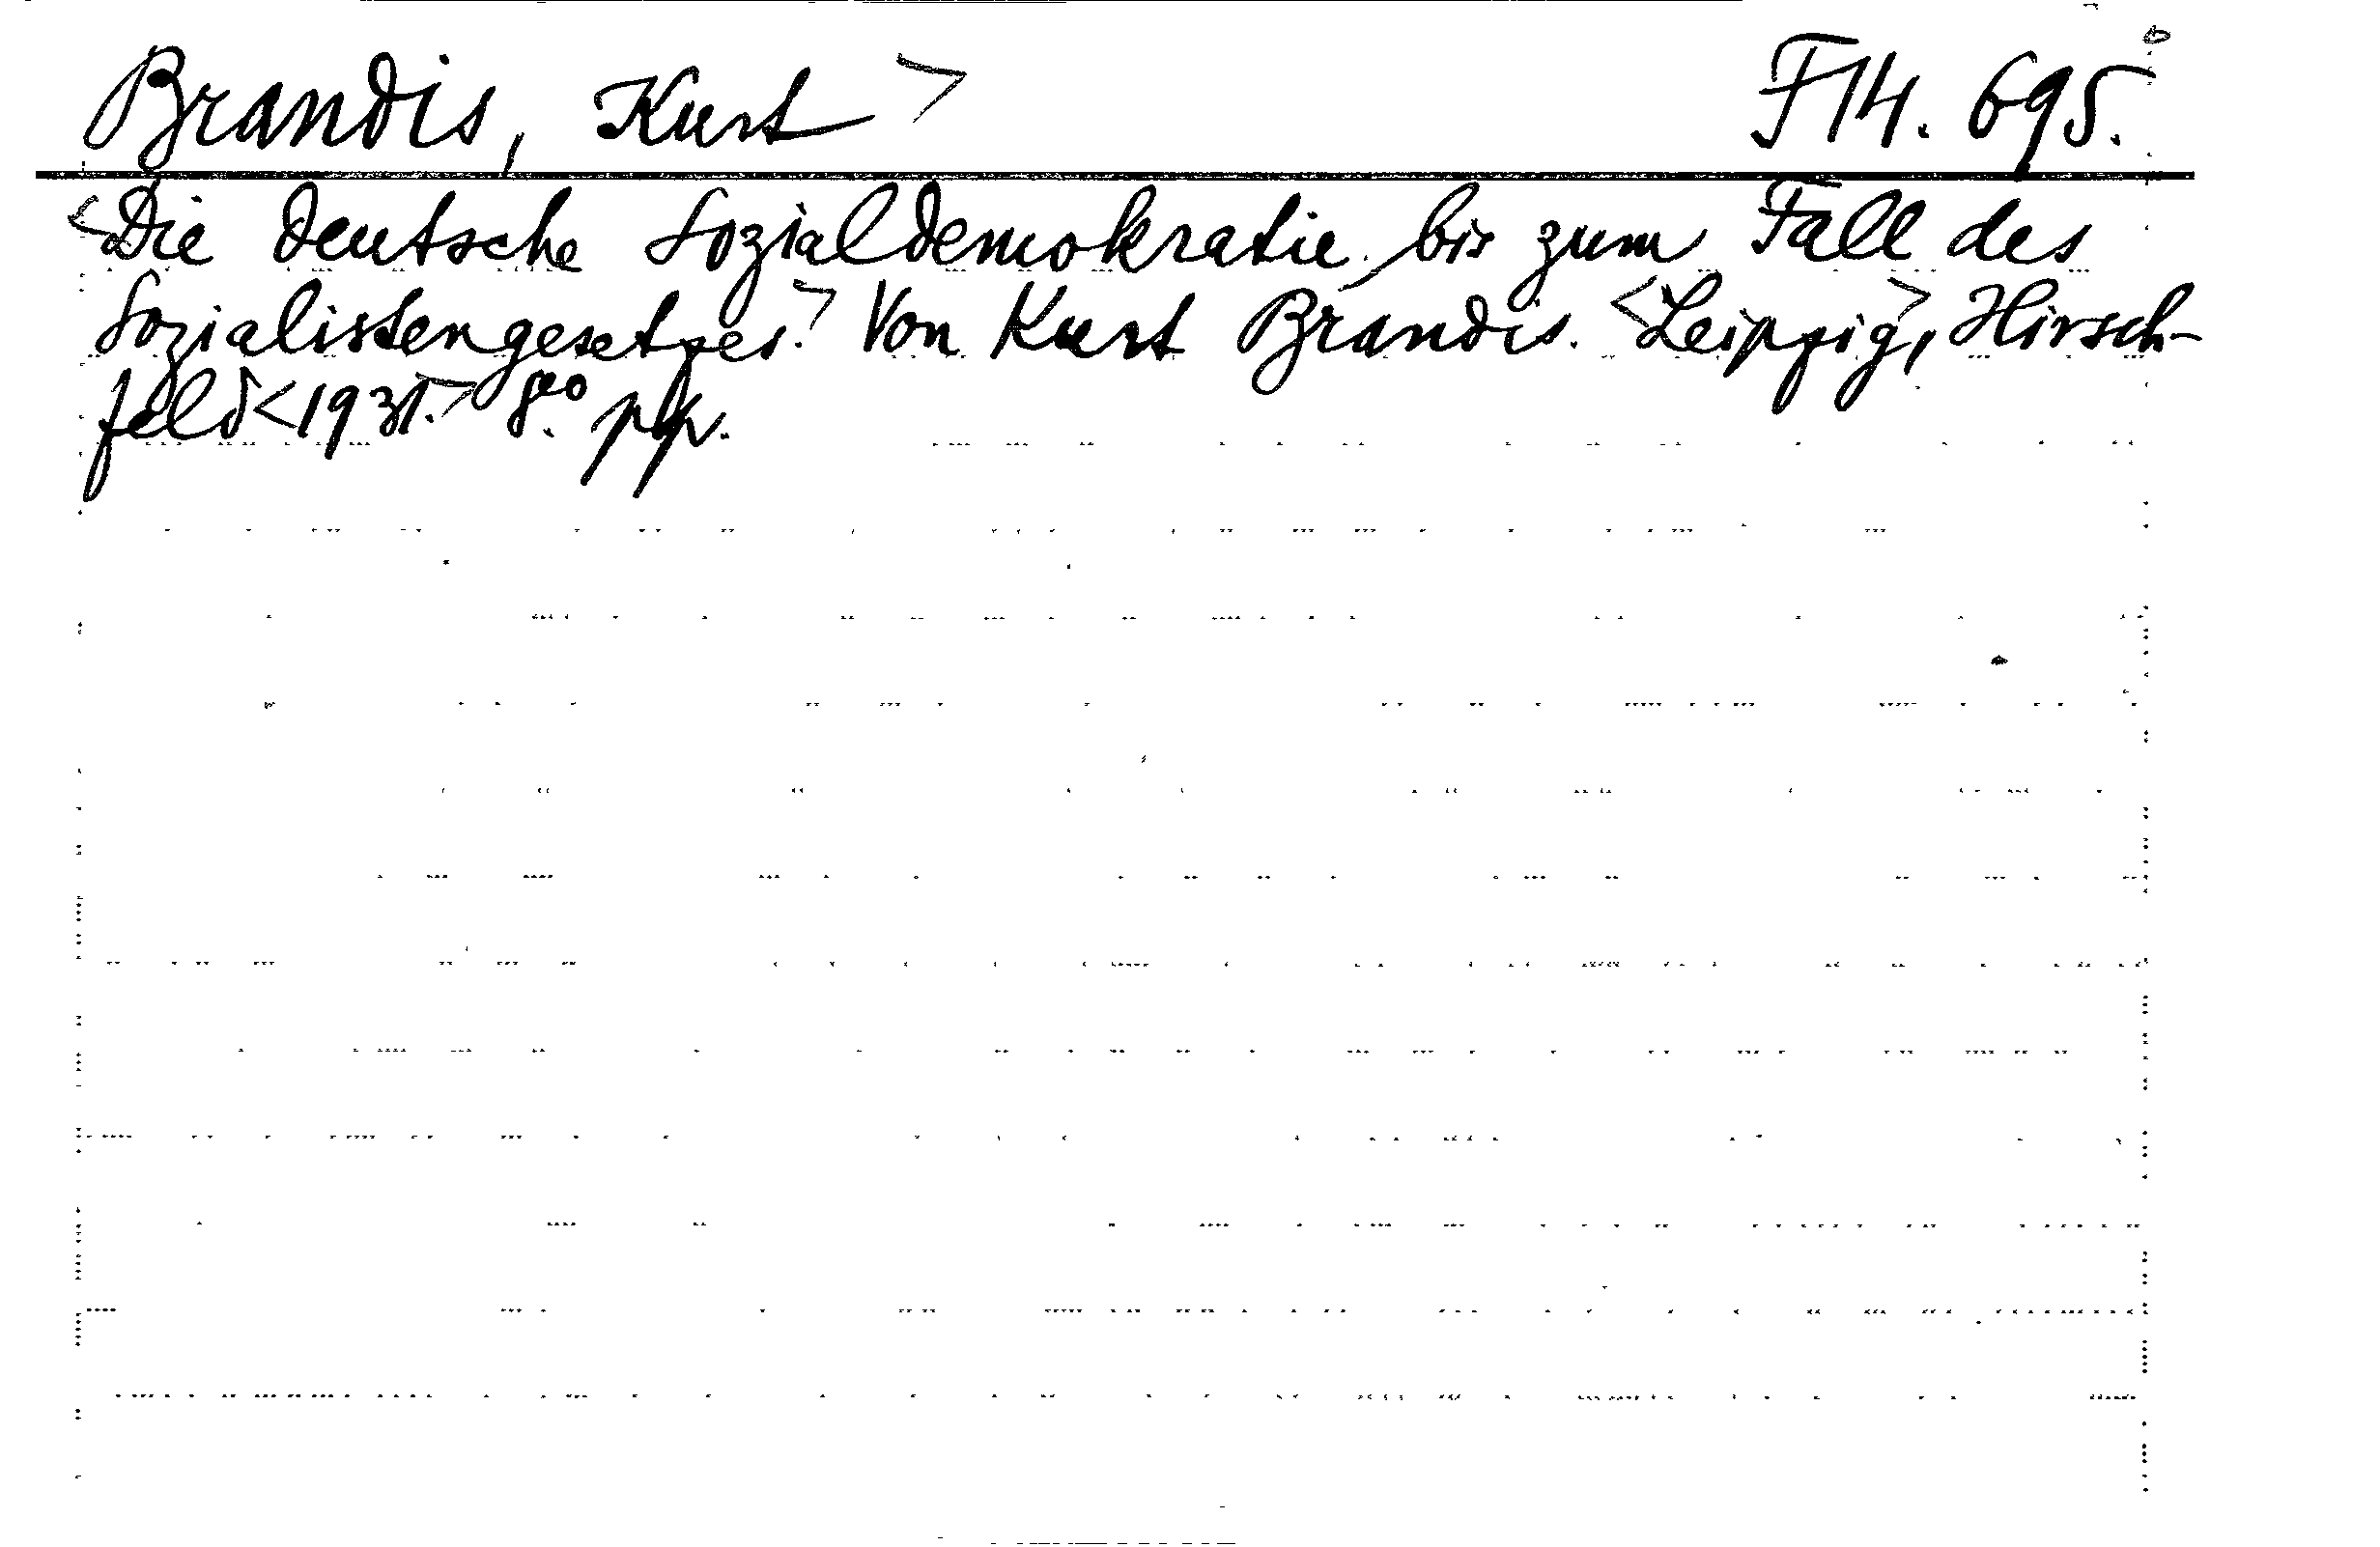 Brandis, Kurt > F14.695.
<Die deutsche Sozialdemokratie bis zum Fall des
Sozialistengesetzes.> Von Kurt Brandis. <Leipzig>, Hirsch-
feld <1931.> 8.° pp.